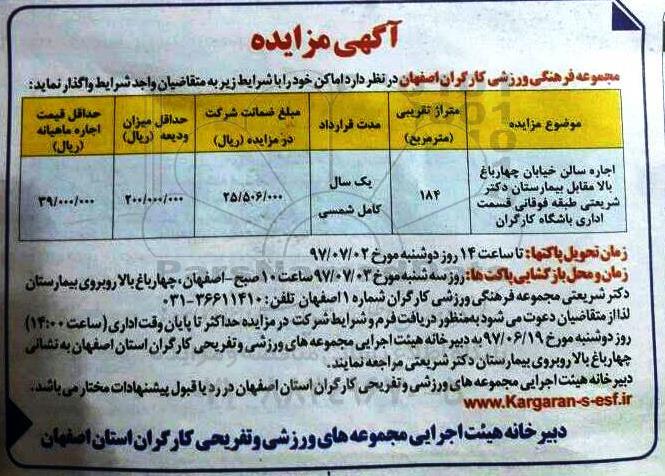 آگهی مزایده
مجموعه فرهنگی ورزشی کارگران اصفهان در نظر دارد اماکن خود را با شرایط زیر به متقاضیان واجد شرایط واگذار نماید:
موضوع مزایده
متراژ تقریبی
(مترمربع)
مدت قرارداد
مبلغ ضمانت شرکت
در مزایده (ریال)
حداقل میزان
ودیعه (ریال)
حداقل قیمت
اجاره ماهیانه
(ریال)
اجاره سالن خیابان چهارباغ
بالا مقابل بیمارستان دکتر
شریعتی طبقه فوقانی قسمت
اداری باشگاه کارگران
۱۸۴
یک سال
کامل شمسی
۲۵/۵۰۶/۰۰۰
۲۰۰/۰۰۰/۰۰۰
۳۹/۰۰۰/۰۰۰
زمان تحویل پاکتها: تا ساعت ۱۴ روز دوشنبه مورخ ۹۷/۰۷/۰۲
زمان و محل بازگشایی پاکت ها: روز سه شنبه مورخ ۹۷/۰۷/۰۳ ساعت ۱۰ صبح - اصفهان ، چهارباغ بالا روبروی بیمارستان
دکتر شریعتی مجموعه فرهنگی ورزشی کارگران شماره ۱ اصفهان تلفن: ۳۶۶۱۱۴۱۰-۰۳۱
لذا از متقاضیان دعوت می شود به منظور دریافت فرم و شرایط شرکت در مزایده حداکثر تا پایان وقت اداری (ساعت ۱۴:۰۰)
روز دوشنبه مورخ ۹۷/۰۶/۱۹ به دبیرخانه هیئت اجرایی مجموعه های ورزشی و تفریحی کارگران استان اصفهان به نشانی
چهارباغ بالا روبروی بیمارستان دکتر شریعتی مراجعه نمایند.
دبیرخانه هیئت اجرایی مجموعه های ورزشی و تفریحی کارگران استان اصفهان در رد یا قبول پیشنهادات مختار می باشد.
www.Kargaran-s-esf.ir
دبیرخانه هیئت اجرایی مجموعه های ورزشی و تفریحی کارگران استان اصفهان